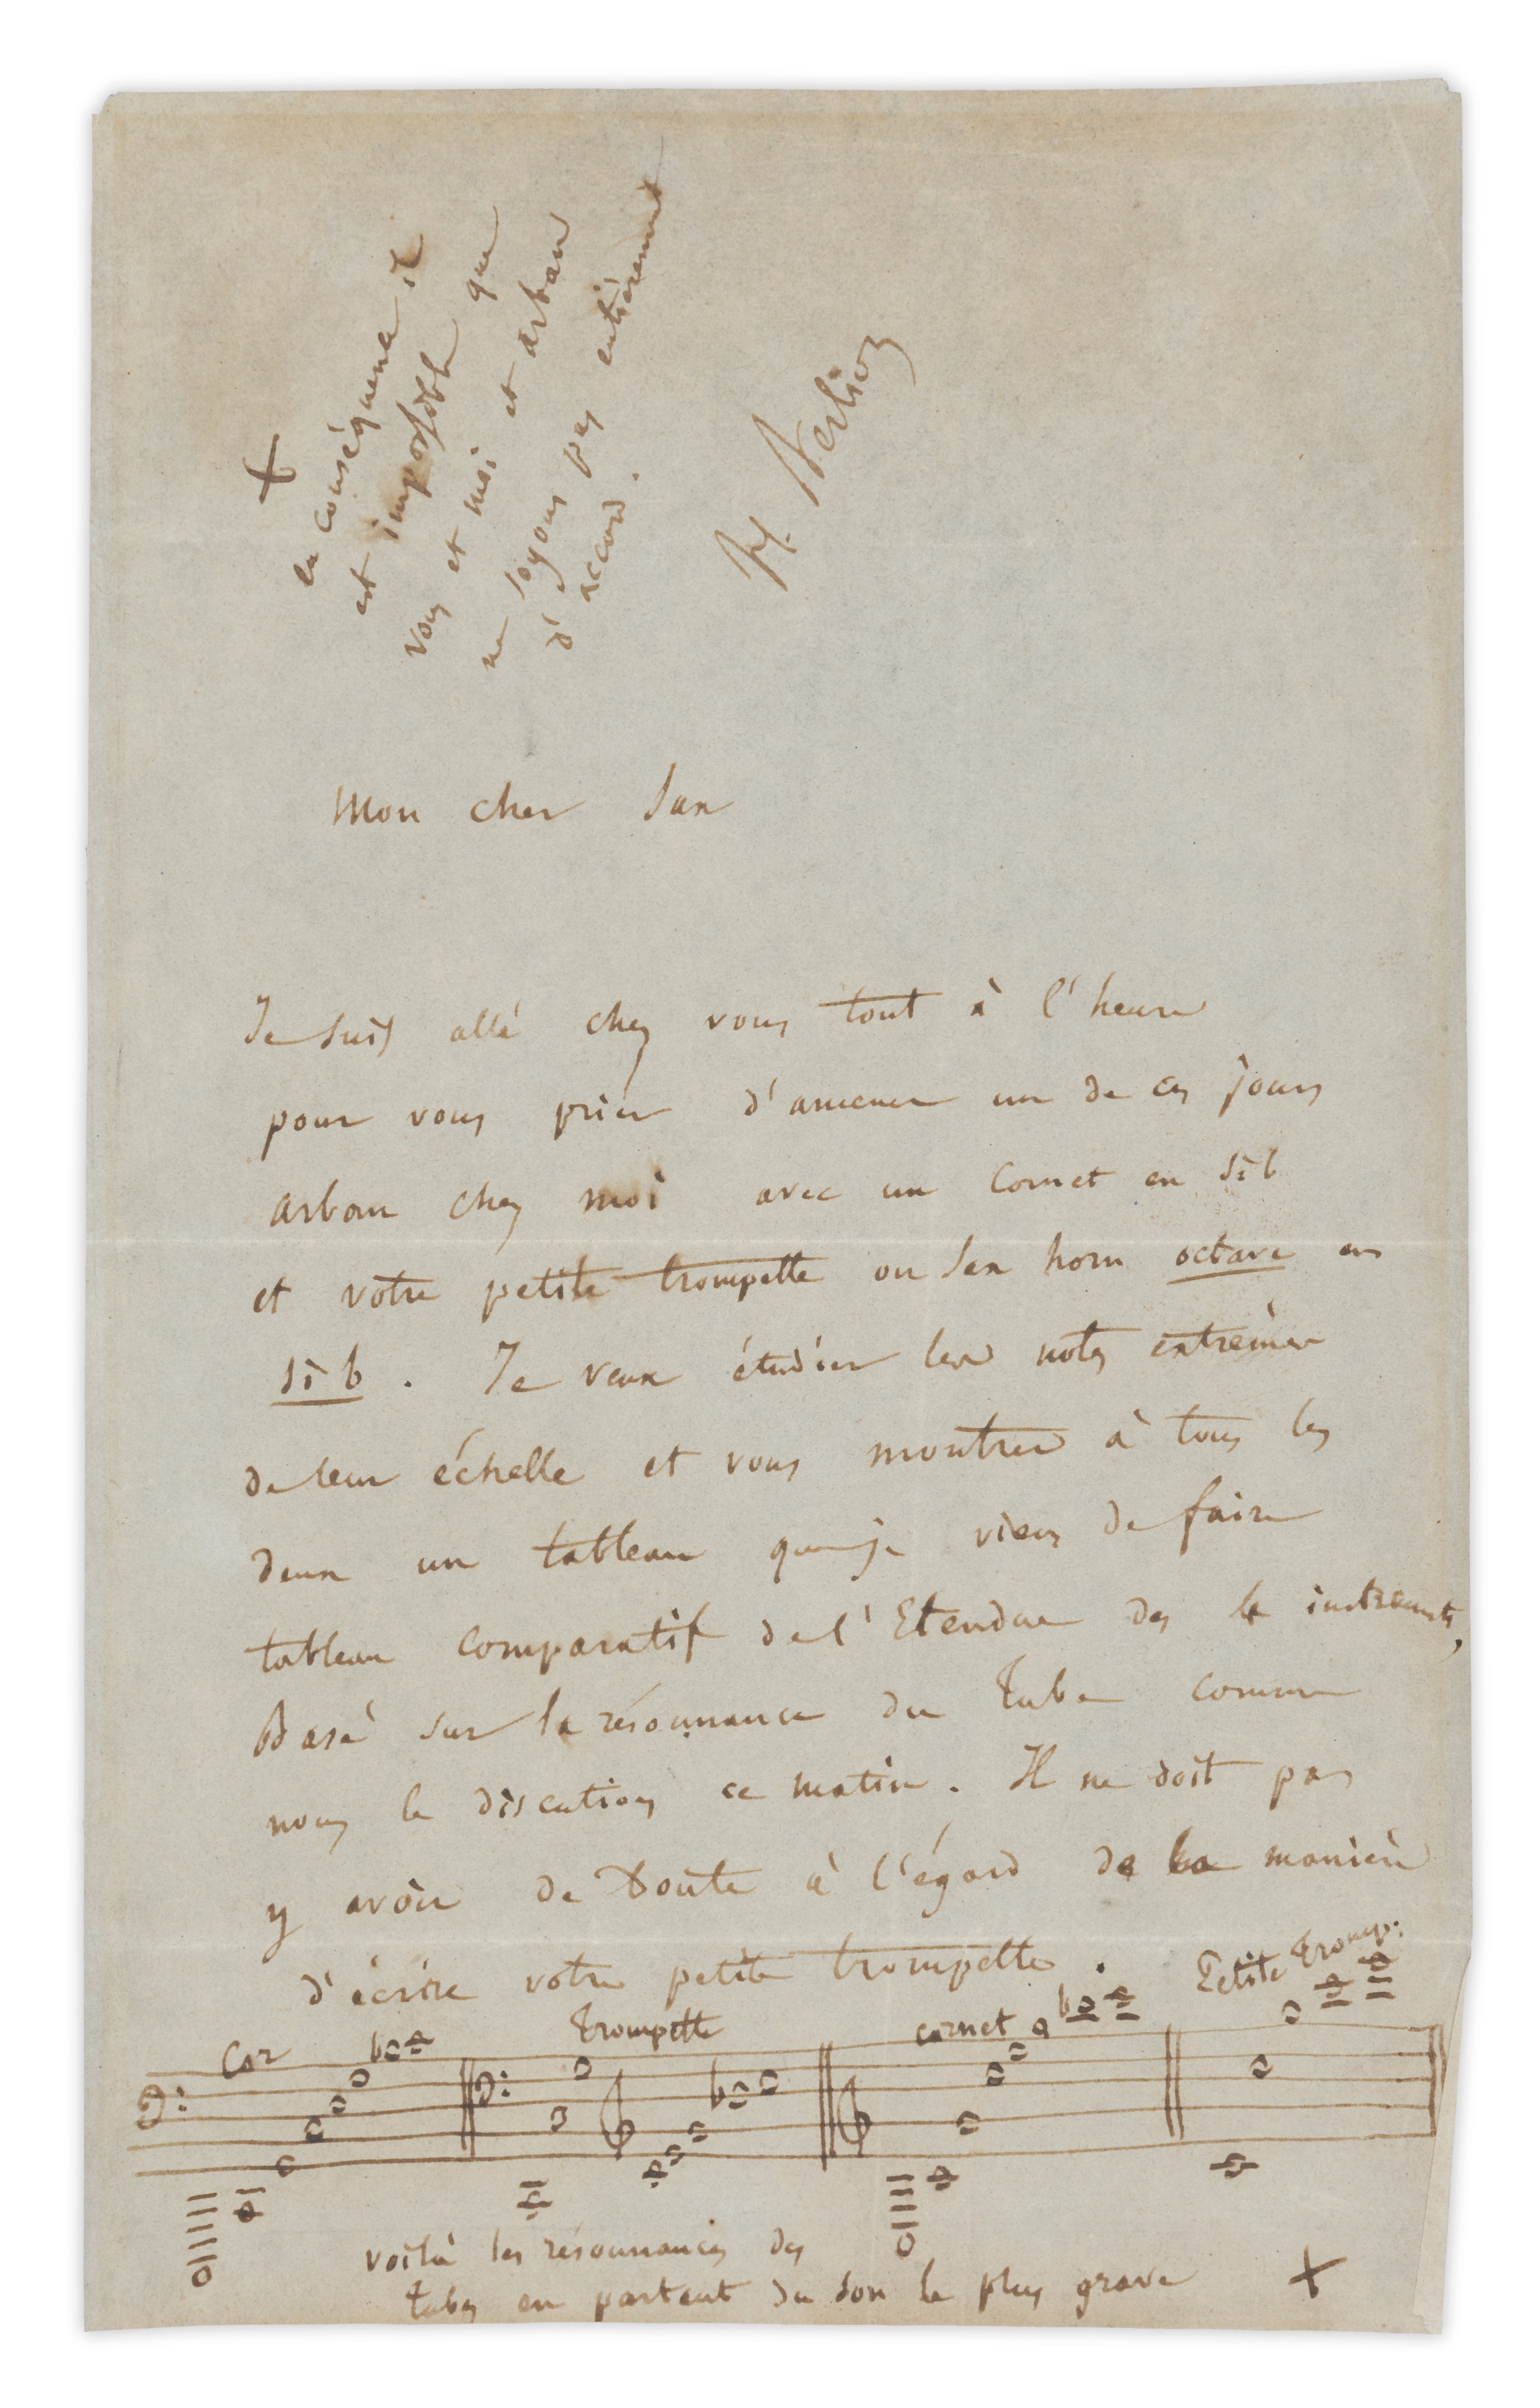 Mon cher Sax
Je suis allé chez vous tout à l'heure
pour vous prier d'amener un de ces jours
arban chez moi avec un Cornet en Si b
et votre petite trompette ou Sax horn octave en
Si b. Je veux étudier les notes extrèmes
de leur échelle et vous montrer à tous les
deux un tableau que je viens de faire
tableau comparatif de l'Etendue des 4 instruments,
Basé sur la résonnance du Tube comme
nous le discutions ce matin. Il ne doit pas
y avoir de Doute à l'égard de la manière
d'écrire votre petite trompette.
Cor Trompette cornet Petite Tromp:
voilà les résonnances des
tubes en partant du Son le plus grave +
+
en conséquence il
est impossible que
vous et moi et arban
ne soyons pas entièrement
d'accord.
H. Berlioz